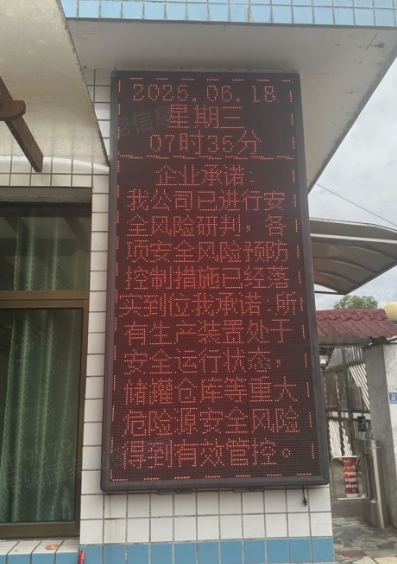 2025.06.18
星期三
07时35分
企业承诺:
我公司已进行安
全风险研判，各
项安全风险预防
控制措施已经落
实到位我承诺:所
有生产装置处于
安全运行状态，
储罐仓库等重大
危险源安全风险
得到有效管控。